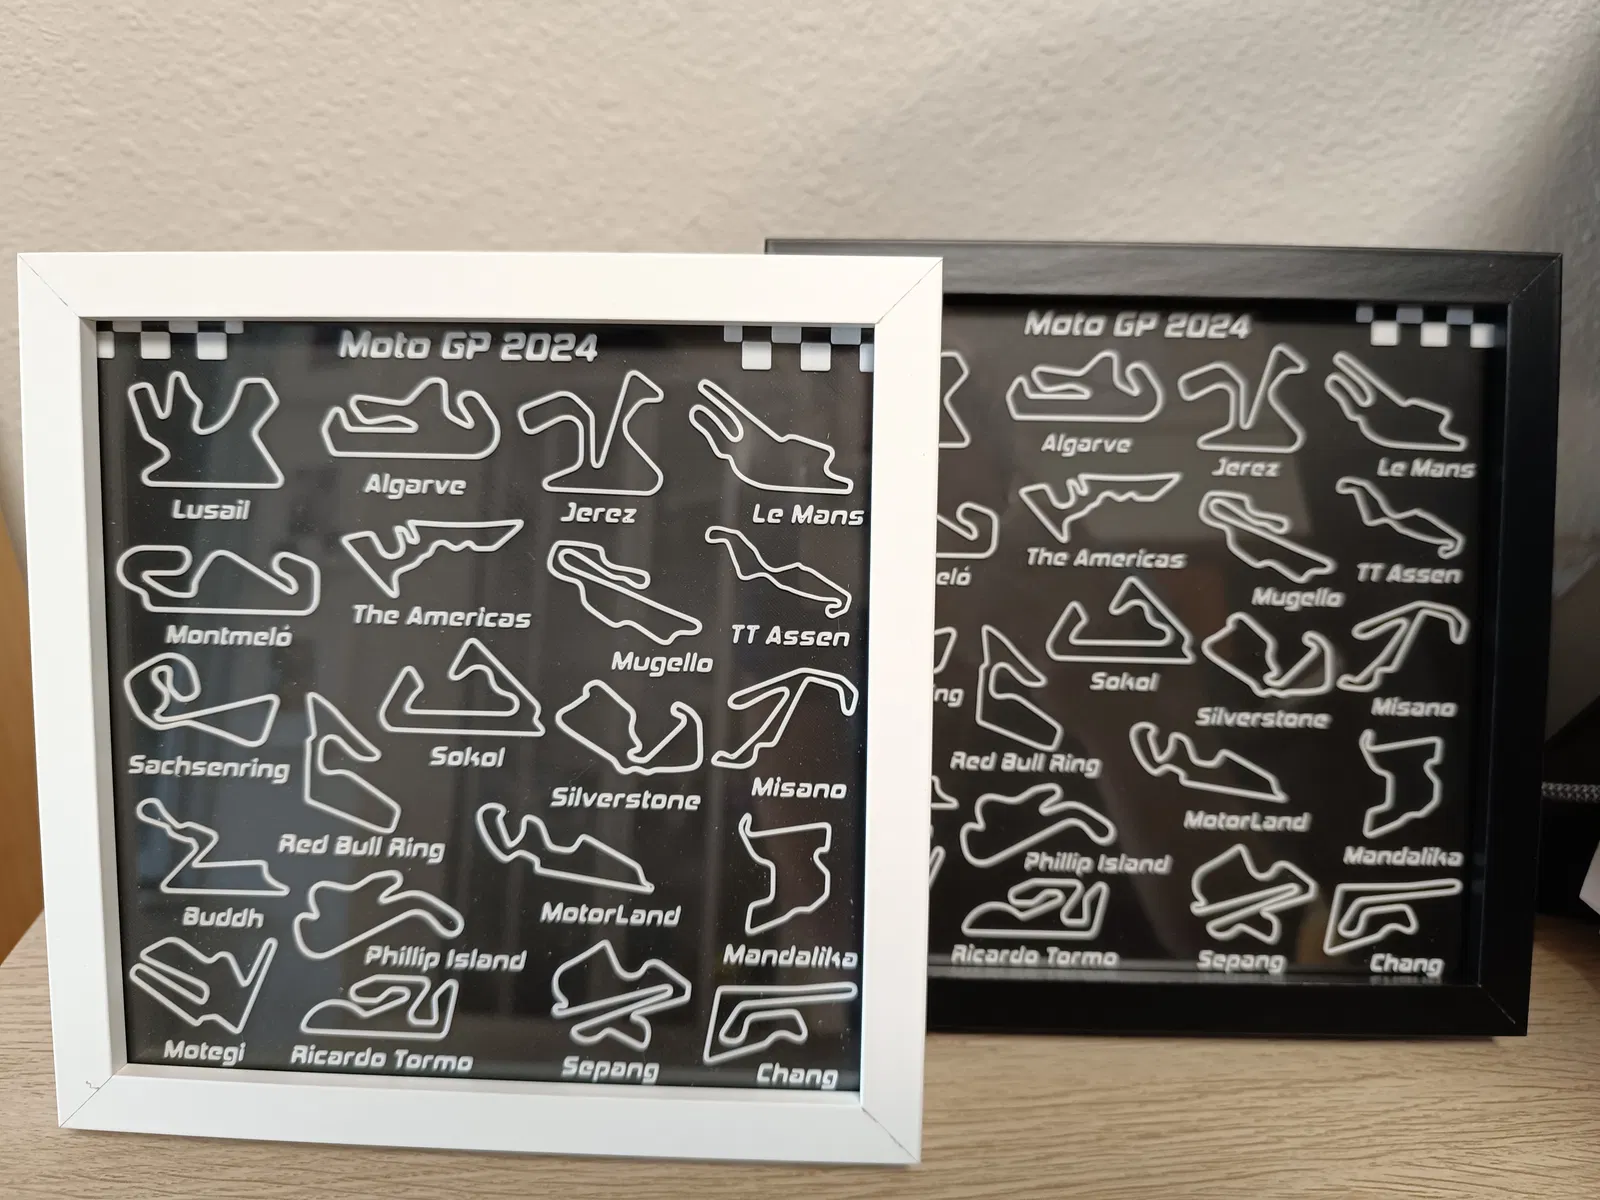 Moto GP 2024
Lusail
Algarve
Jerez
Le Mans
Montmeló
The Americas
Mugello
TT Assen
Sachsenring
Red Bull Ring
Sokol
Silverstone
Misano
Buddh
Phillip Island
MotorLand
Mandalika
Motegi
Ricardo Tormo
Sepang
Chang
Moto GP 2024
Algarve
Jerez
Le Mans
eló
The Americas
Mugello
TT Assen
ng
Red Bull Ring
Sokol
Silverstone
Misano
Phillip Island
MotorLand
Mandalika
Ricardo Tormo
Sepang
Chang